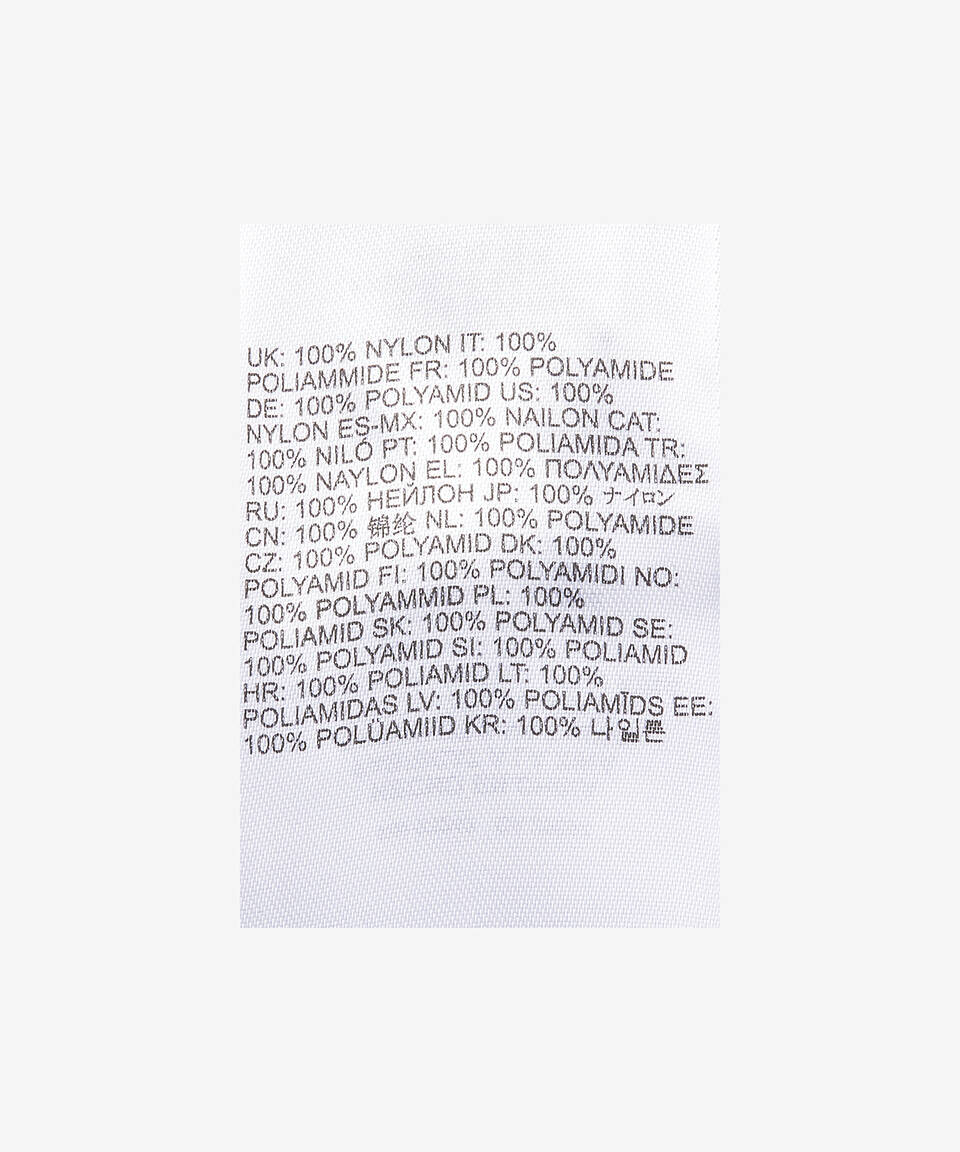 UK: 100% NYLON IT: 100%
POLIAMMIDE FR: 100% POLYAMIDE
DE: 100% POLYAMID US: 100%
NYLON ES-MX: 100% NAILON CAT:
100% NILÓ PT: 100% POLIAMIDA TR:
100% NAYLON EL: 100% ΠΟΛΥΑΜΙΔΕΣ
RU: 100% НЕЙЛОН JP: 100% ナイロン
CN: 100% 锦纶 NL: 100% POLYAMIDE
CZ: 100% POLYAMID DK: 100%
POLYAMID FI: 100% POLYAMIDI NO:
100% POLYAMMID PL: 100%
POLIAMID SK: 100% POLYAMID SE:
100% POLYAMID SI: 100% POLIAMID
HR: 100% POLIAMID LT: 100%
POLIAMIDAS LV: 100% POLIAMĪDS EE:
100% POLÜAMIID KR: 100%